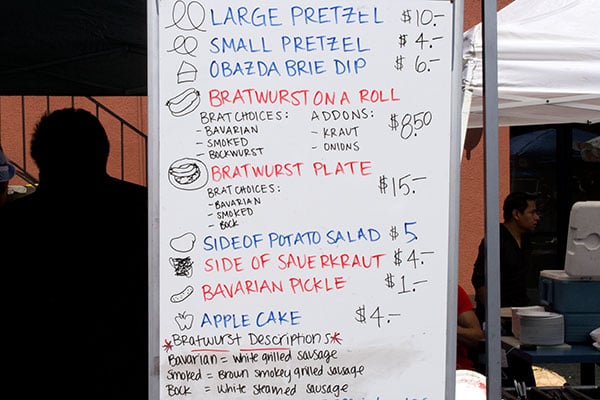 LARGE PRETZEL $10.-
SMALL PRETZEL $4.-
OBAZDA BRIE DIP $6.-
BRATWURST ON A ROLL
BRAT CHOICES: ADD ONS: $8.50
- BAVARIAN - KRAUT
- SMOKED - ONIONS
- BOCKWURST
BRATWURST PLATE
BRAT CHOICES: $15.-
- BAVARIAN
- SMOKED
- BOCK
SIDE OF POTATO SALAD $5.
SIDE OF SAUERKRAUT $4.-
BAVARIAN PICKLE $1.-
APPLE CAKE $4.-
*Bratwurst Descriptions*
Bavarian = white grilled sausage
Smoked = Brown smokey grilled sausage
Bock = White steamed sausage